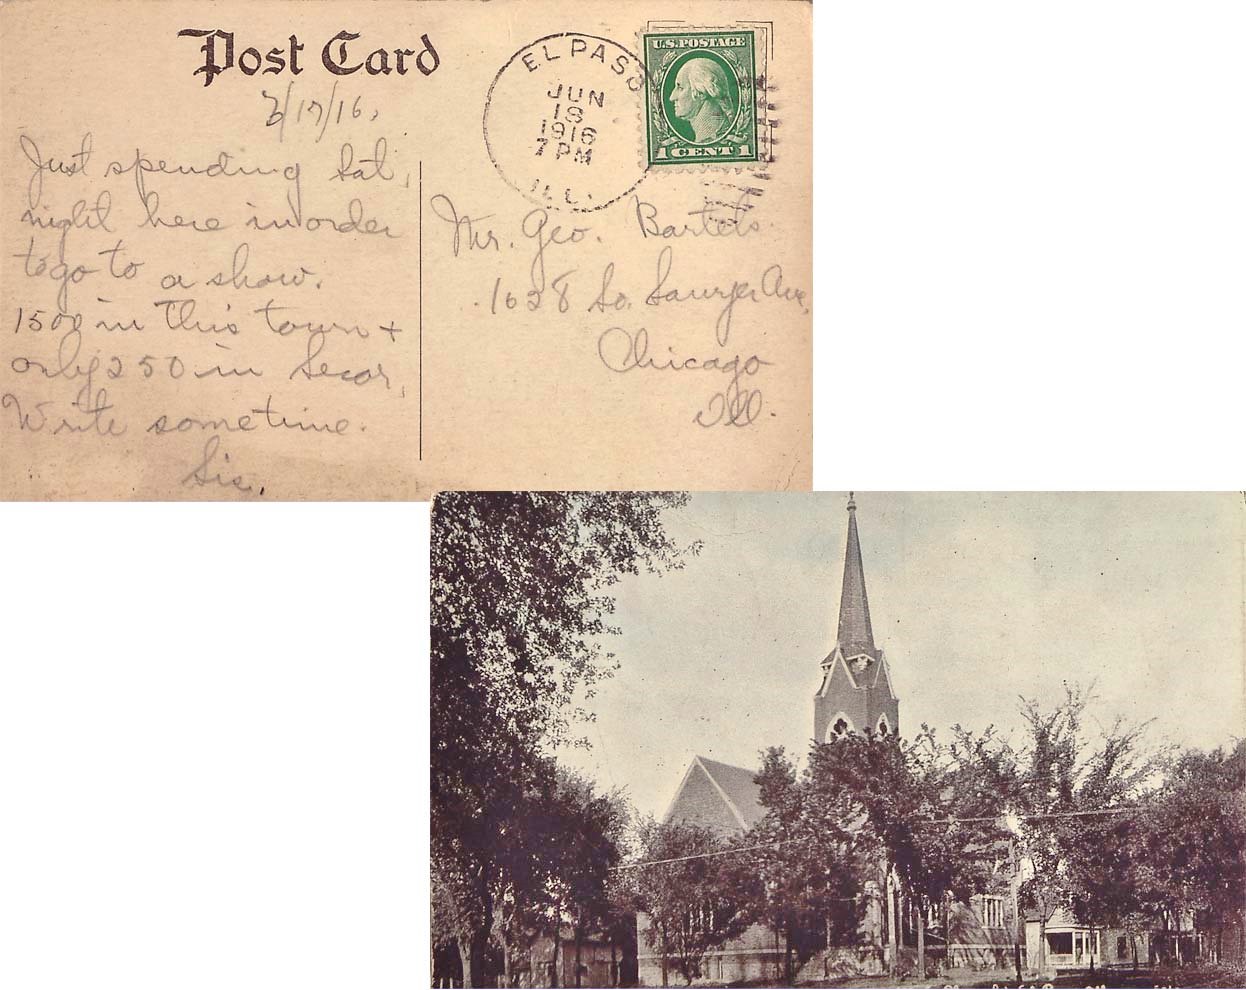 Post Card
EL PASO
JUN
18
1916
7 PM
ILL.
U.S. POSTAGE
1 CENT 1
6/17/16.
Just spending Sat.
night here in order
to go to a show.
1500 in this town +
only 250 in Secor.
Write sometime.
Sis.
Mr. Geo. Bartels.
1628 So. Sawyer Ave.
Chicago
Ill.